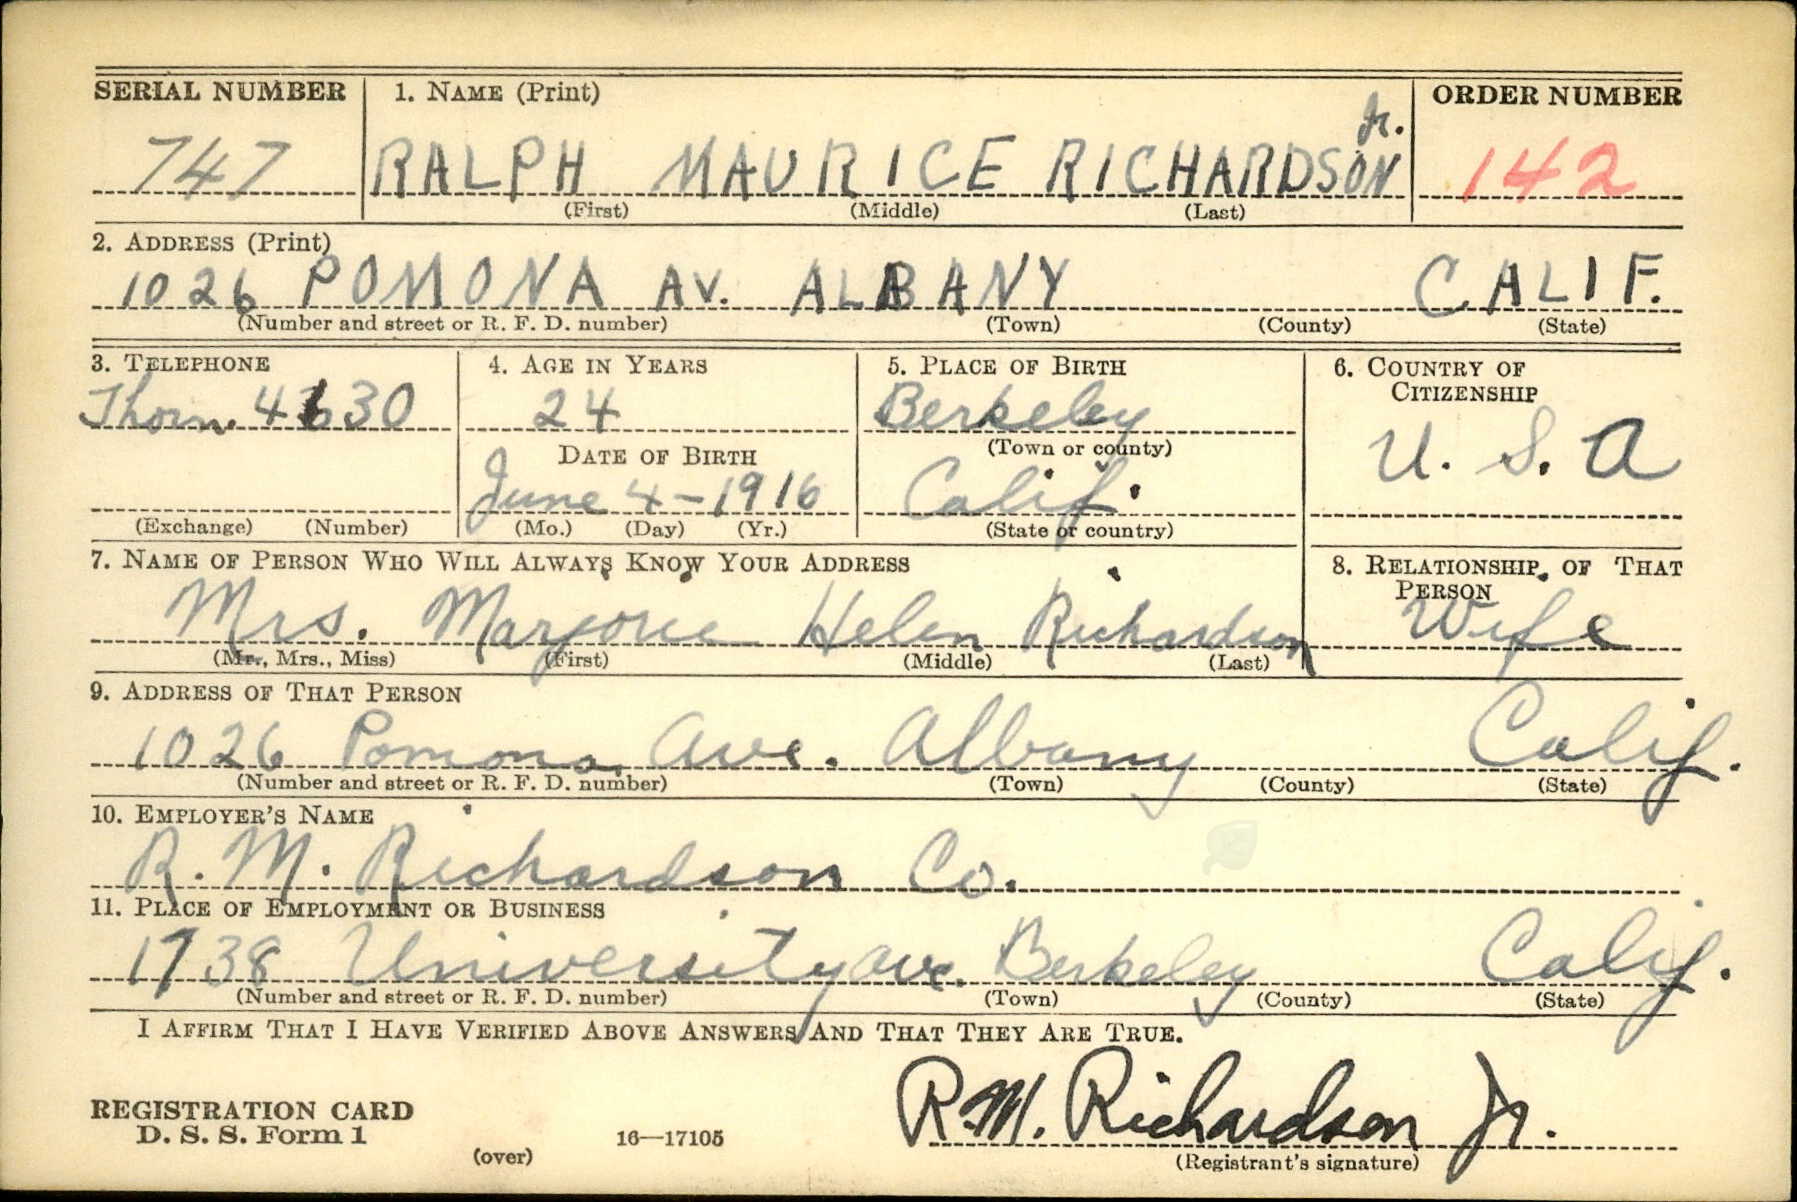 SERIAL NUMBER 1. NAME (Print) ORDER NUMBER
747 RALPH MAURICE RICHARDSON Jr. 142
(First) (Middle) (Last)
2. ADDRESS (Print)
1026 POMONA AV. ALBANY CALIF.
(Number and street or R. F. D. number) (Town) (County) (State)
3. TELEPHONE 4. AGE IN YEARS 5. PLACE OF BIRTH 6. COUNTRY OF CITIZENSHIP
Thorn. 4630 24 Berkeley U. S. A
(Town or county)
DATE OF BIRTH
June 4-1916 Calif.
(Exchange) (Number) (Mo.) (Day) (Yr.) (State or country)
7. NAME OF PERSON WHO WILL ALWAYS KNOW YOUR ADDRESS 8. RELATIONSHIP OF THAT PERSON
Mrs. Marjorie Helen Richardson Wife
(Mr., Mrs., Miss) (First) (Middle) (Last)
9. ADDRESS OF THAT PERSON
1026 Pomona Ave. Albany Calif.
(Number and street or R. F. D. number) (Town) (County) (State)
10. EMPLOYER'S NAME
R. M. Richardson Co.
11. PLACE OF EMPLOYMENT OR BUSINESS
1738 University Ave. Berkeley Calif.
(Number and street or R. F. D. number) (Town) (County) (State)
I AFFIRM THAT I HAVE VERIFIED ABOVE ANSWERS AND THAT THEY ARE TRUE.
R.M. Richardson Jr.
REGISTRATION CARD
D. S. S. Form 1 16—17105
(over) (Registrant's signature)